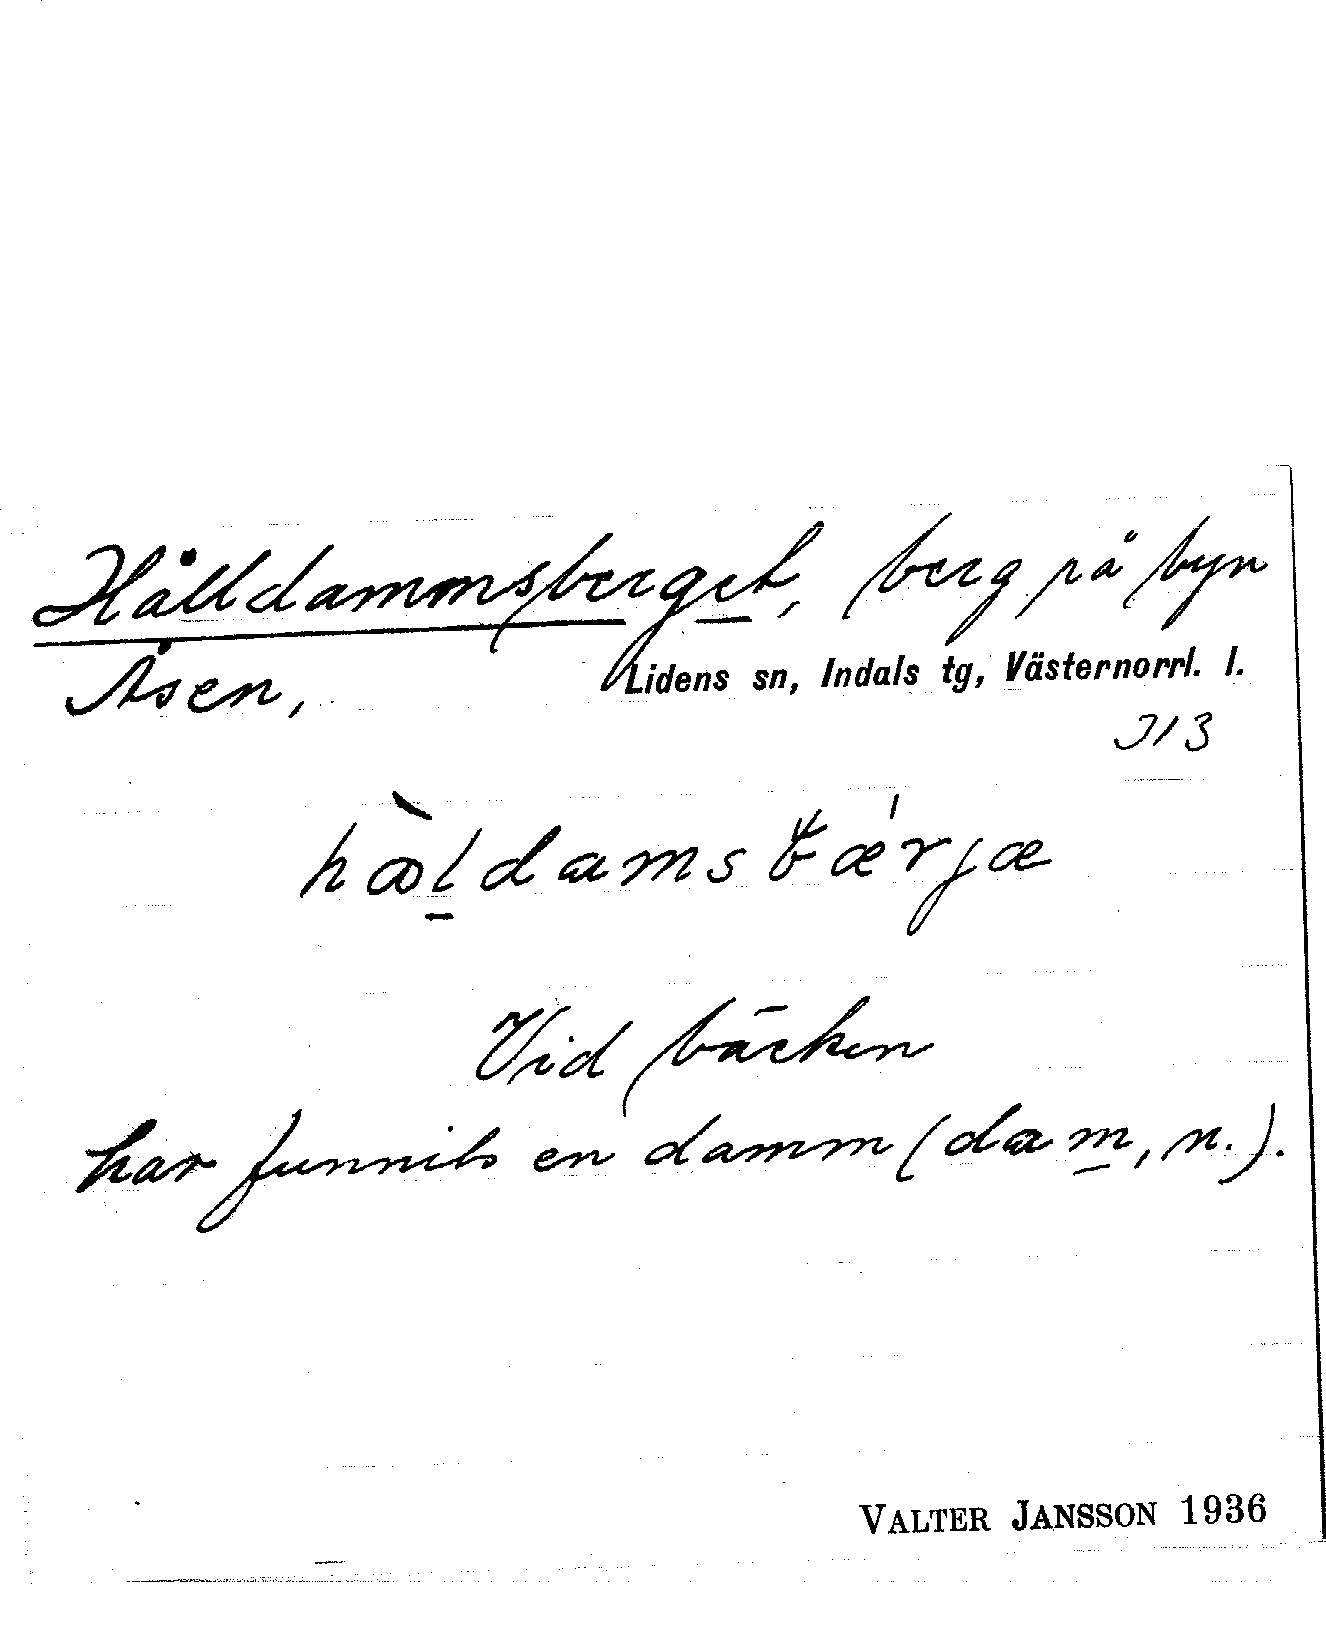 Hålldammsberget, berg på byn
Åsen, Lidens sn, Indals tg, Västernorrl. l.
313
Vid bäcken
har funnits en damm (dam, n.).
VALTER JANSSON 1936